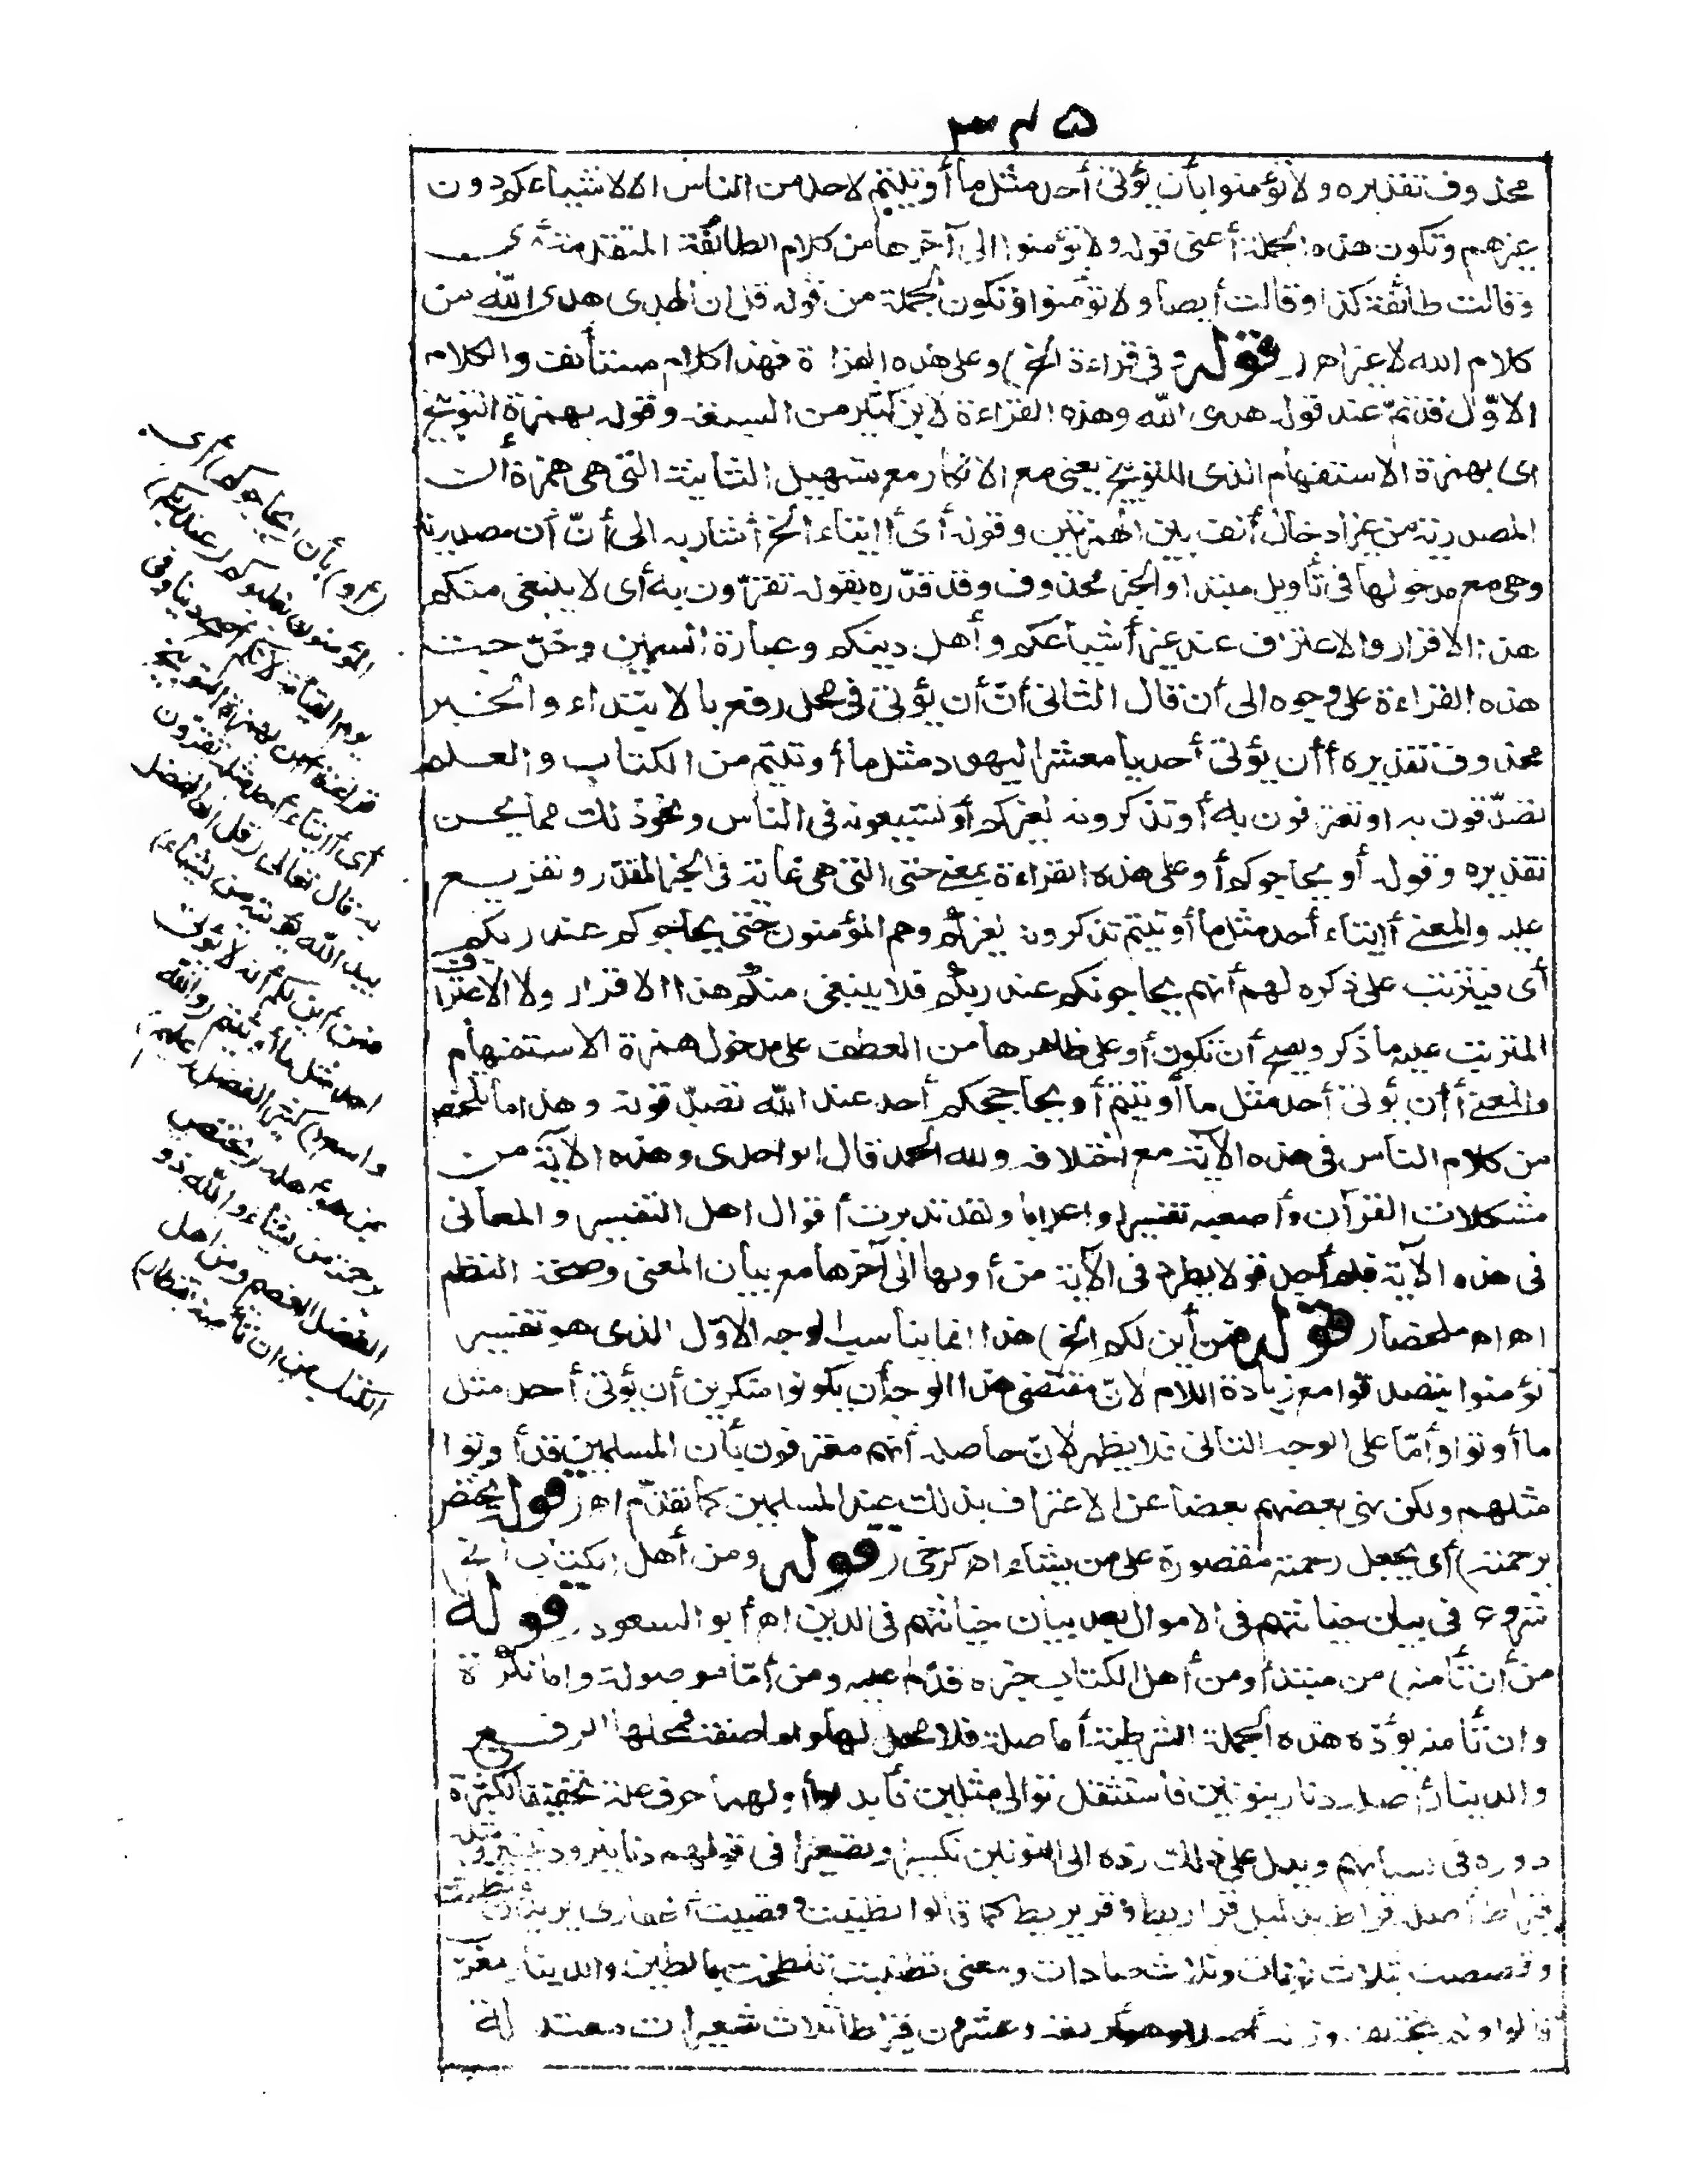 ٣٤٥
محذوف تقديره ولا تؤمنوا بأن يؤتى أحد مثل ما أوتيتم لاحد من الناس الا لاشياعكم دون
غيرهم وتكون هذه الجملة أعنى قوله ولا تؤمنوا الى آخرها من كلام الطائفة المتقدمة أى
وقالت طائفة كذا وقالت أيضا ولا تؤمنوا وتكون الجملة من قوله قل ان الهدى هدى الله من
كلام الله لا غير اهـ (قوله وفى قراءة الخ) وعلى هذه القراءة فهذا كلام مستأنف والكلام
الاوّل قد تمّ عند قوله هدى الله وهذه القراءة لابن كثير من السبعة وقوله بهمزة التوبيخ
اى بهمزة الاستفهام الذى للتوبيخ يعنى مع الانكار مع تسهيل الثانية التى هى همزة أن
المصدرية من غير ادخال ألف بين الهمزتين وقوله أى أايتاء الخ أشار به الى أنّ أن مصدرية
وهى مع مدخولها فى تأويل مبتدا والخبر محذوف وقد قدّره بقوله تقرّون به أى لا ينبغى منكم
هذا الاقرار والاعتراف عند غير أشياعكم وأهل دينكم وعبارة السمين وخرّجت
هذه القراءة على وجوه الى أن قال الثانى أنّ أن يؤتى فى محل رفع بالابتداء والخبر
محذوف تقديره أأن يؤتى أحد يا معشر اليهود مثل ما أوتيتم من الكتاب والعلم
تصدّقون به او تعترفون به أو تذكرونه لغيركم أو تشيعونه فى الناس ونحو ذلك مما يحسن
تقديره وقوله أو يحاجوكم أو على هذه القراءة بمعنى حتى التى هى غاية فى الخبر المقدّر وتفريع
عليه والمعنى أايتاء أحد مثل ما أوتيتم تذكرونه لغيركم وهم المؤمنون حتى يحاجوكم عند ربكم
أى فيترتب على ذكره لهم أنهم يحاجونكم عند ربكم فلا ينبغى منكم هذا الاقرار ولا الاعتراف
المترتب عليه ما ذكر ويصح أن تكون أو على ظاهرها من العطف على مدخول همزة الاستفهام
والمعنى أأن يؤتى أحد مثل ما أوتيتم أو يحاججكم أحد عند الله تصدّقونه وهذا ما تلخص
من كلام الناس فى هذه الآية مع اختلافه ولله الحمد قال الواحدى وهذه الآية من
مشكلات القرآن وأصعبه تفسيرا واعرابا ولقد تدبرت أقوال اهل التفسير والمعانى
فى هذه الآية فلم أجد قولا يطرد فى الآية من أولها الى آخرها مع بيان المعنى وصحة النظم
اهـ اهـ ملخصا (قوله فمن أين لكم الخ) هذا انما يناسب الوجه الاوّل الذى هو تفسير
تؤمنوا بتصدقوا مع زيادة اللام لانّ مقتضى هذا الوجه أن يكونوا منكرين أن يؤتى أحد مثل
ما أوتوا وأمّا على الوجه الثانى فلا يظهر لانّ حاصله أنهم معترفون بأن المسلمين قد أوتوا
مثلهم ولكن نهى بعضهم بعضا عن الاعتراف بذلك عند المسلمين كما تقدّم اهـ (قوله يختص
برحمته) أى يجعل رحمته مقصورة على من يشاء اهـ كرخى (قوله ومن أهل الكتاب الخ)
شروع فى بيان خيانتهم فى الاموال بعد بيان خيانتهم فى الدين اهـ أبو السعود (قوله
من أن تأمنه) من مبتدأ ومن أهل الكتاب خبره قدّم عليه ومن أمّا موصولة واما نكرة
وان تأمنه يؤدّه هذه الجملة الشرطية أما صلة فلا محل لها واما صفة فمحلها الرفع
والدينار أصله دنار بنونين فاستثقل توالى مثلين فأبدلوا أولهما حرف علة تخفيفا لكثرة
دوره فى لسانهم ويدل على ذلك ردّه الى النونين تكسيرا وتصغيرا فى قولهم دنانير ودنينير ومثله
قيراط أصله قراط بدليل قراريط وقريريط كما قالوا تظنيت وقصيت أظفارى يريدون تظننت
وقصصت بثلاث نونات وثلاث صادات ومعنى تظنيت والدينار معرّب
قالوا ولم يختلف وزنه أصلا وهو أربعة وعشرون قيراطا ثلاث شعيرات معتدلة
(أو) بأن (يحاجوكم) أى
المؤمنون يغلبوكم (عند ربكم)
يوم القيامة لانكم أصح دينا وفى
قراءة أأن بهمزة التوبيخ
أى أايتاء أحد مثله تقرّون
به قال تعالى (قل ان الفضل
بيد الله يؤتيه من يشاء)
فمن أين لكم أنه لا يؤتى
احد مثل ما أوتيتم (والله
واسع) كثير الفضل (عليم)
بمن هو أهله (يختص
برحمته من يشاء والله ذو
الفضل العظيم ومن اهل
الكتاب من ان تأمنه بقنطار)